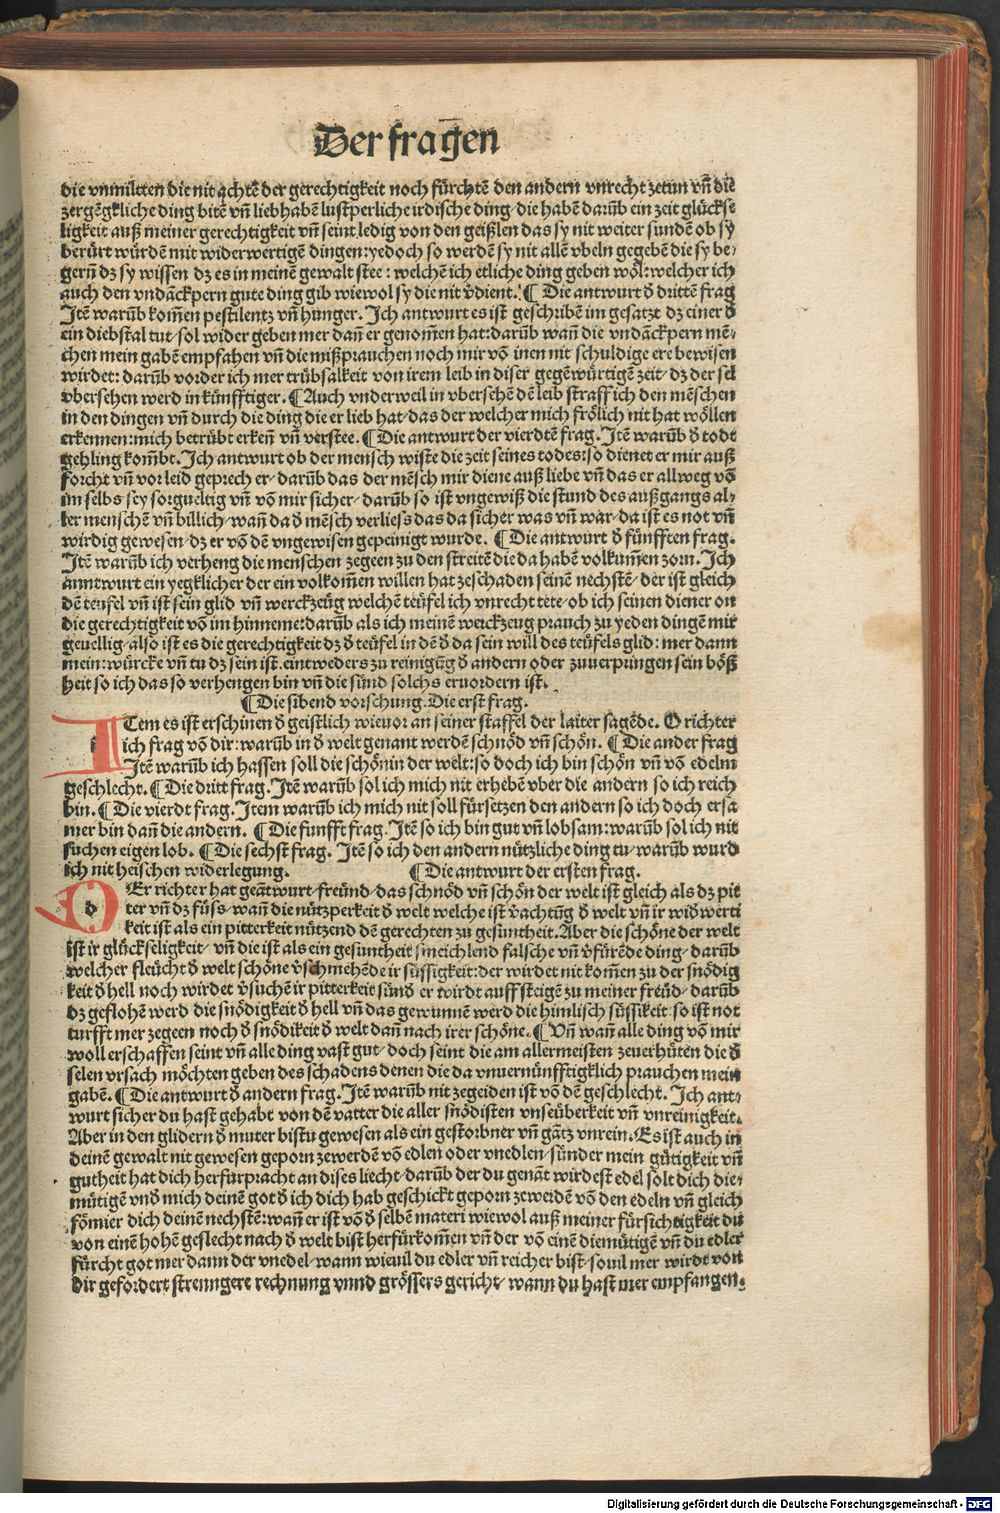 Der fragen
die vnmiltten die nit achtē der gerechtigkeit noch fürchtē den andern vnrecht zetun vn̄ die
zergēgkliche ding bitē vn̄ liebhabē lustperliche irdische ding/die habē darūb ein zeit glückse
ligkeit auß meiner gerechtigkeit vn̄ seint ledig von den geißlen das sy nit weiter sunden ob sy
berürt würdē mit widerwertigē dingen: yedoch so werdē sy nit allē vbeln gegebē die sy be⸗
gern̄ dz sy wissen dz es in meinē gewalt stee: welchē ich etliche ding geben wöl: welcher ich
auch den vndāckpern gute ding gib wiewol sy die nit v̄dient. ¶ Die antwurt d̄ drittē frag
Itē warūb kom̄en pestilentz vn̄ hunger. Ich antwurt es ist geschribē im gesatz dz einer d̄
ein diebstal tut/sol wider geben mer dan̄ er genom̄en hat: darūb wan̄ die vndāckpern mē⸗
chen mein gabē empfahen vn̄ die mißprauchen noch mir vō inen nit schuldige ere bewisen
wirdet: darūb vorder ich mer trübsalkeit von irem leib in diser gegēwürtigē zeit/dz der sel
vbersehen werd in künfftiger. ¶ Auch vnderweil in vbersehē dē leib straff ich den mēschen
in den dingen vn̄ durch die ding die er lieb hat/das der welcher mich frölich nit hat wöllen
erkennen: mich betrübt erken̄ vn̄ verstee. ¶ Die antwurt der vierdtē frag. Itē warūb d̄ todt
gehling kom̄bt. Ich antwurt ob der mensch wiste die zeit seines todes: so dienet er mir auß
forcht vn̄ vor leid geprech er/darūb das der mēsch mir diene auß liebe vn̄ das er allweg vō
im selbs sey sorgueltig vn̄ vō mir sicher/darūb so ist vngewiß die stund des außgangs al⸗
ler menschē vn̄ billich/wan̄ da d̄ mēsch verliess das da sicher was vn̄ war/da ist es not vn̄
wirdig gewesen/dz er vō dē vngewisen gepeinigt wurde. ¶ Die antwurt d̄ fünfften frag.
Itē warūb ich verheng die menschen zegeen zu den streitē die da habē volkum̄en zorn. Ich
anntwurt ein yegklicher der ein volkom̄en willen hat zeschaden seinē nechstē/der ist gleich
dē teufel vn̄ ist sein glid vn̄ werckzeüg welchē teüfel ich vnrecht tete/ob ich seinen diener on
die gerechtigkeit vō im hinneme: darūb als ich meinē werckzeug prauch zu yeden dingē mir
geuellig/also ist es die gerechtigkeit dz d̄ teüfel in dē d̄ da sein will des teüfels glid: mer dann
mein: würcke vn̄ tu dz sein ist. eintweders zu reinigūg d̄ andern oder zuuerpringen sein böß
heit so ich das so verhengen bin vn̄ die sünd solchs eruordern ist.
¶ Die sibend vorschung. Die erst frag.
ITem es ist erschinen d̄ geistlich wieuor an seiner staffel der laiter sagēde. O richter
ich frag vō dir: warūb in d̄ welt genant werdē schnöd vn̄ schön. ¶ Die ander frag
Itē warūb ich hassen soll die schönin der welt: so doch ich bin schön vn̄ vō edelm
geschlecht. ¶ Die dritt frag. Itē warūb sol ich mich nit erhebē vber die andern so ich reich
bin. ¶ Die vierdt frag. Item warūb ich mich nit soll fürsetzen den andern so ich doch ersa
mer bin dan̄ die andern. ¶ Die funfft frag. Itē so ich bin gut vn̄ lobsam: warūb sol ich nit
suchen eigen lob. ¶ Die sechst frag. Itē so ich den andern nützliche ding tu/warūb wurd
ich nit heischen widerlegung. ¶ Die antwurt der ersten frag.
DEr richter hat geātwurt/freünd/das schnöd vn̄ schön der welt ist gleich als dz pit
ter vn̄ dz süss/wan̄ die nützperkeit d̄ welt welche ist v̄achtūg d̄ welt vn̄ ir wid̄werti
keit ist als ein pitterkeit nützend dē gerechten zu gesuntheit. Aber die schöne der welt
ist ir glückseligkeit/vn̄ die ist als ein gesuntheit smeichlend falsche vn̄ v̄fürēde ding/darūb
welcher fleücht d̄ welt schöne v̄schmehēde ir süssigkeit: der wirdet nit kom̄en zu der snödig
keit d̄ hell noch wirdet v̄suchē ir pitterkeit sūnd̄ er wirdt auffsteigē zu meiner freüd/darūb
dz geflohē werd die snödigkeit d̄ hell vn̄ das gewunnē werd die himlisch süssikeit/so ist not
turfft mer zegeen noch d̄ snödikeit d̄ welt dan̄ nach irer schöne. ¶ Vn̄ wan̄ alle ding vō mir
woll erschaffen seint vn̄ alle ding vast gut/doch seint die am allermeisten zeuerhüten die d̄
selen vrsach möchten geben des schadens denen die da vnuernünfftigklich prauchen mein
gabē. ¶ Die antwurt d̄ andern frag. Itē warūb nit zegeiden ist vō dē geschlecht. Ich ant⸗
wurt sicher du hast gehabt von dē vatter die aller snödisten vnseüberkeit vn̄ vnreinigkeit.
Aber in den glidern d̄ muter bistu gewesen als ein gestorbner vn̄ gātz vnrein. Es ist auch in
deinē gewalt nit gewesen geporn zewerdē vō edlen oder vnedlen/sūnder mein gütigkeit vn̄
gutheit hat dich herfürpracht an dises liecht/darūb der du genāt wirdest edel solt dich die⸗
mütigē vnd̄ mich deinē got d̄ ich dich hab geschickt geporn zewerdē vō den edeln vn̄ gleich
fömier dich deinē nechstē: wan̄ er ist vō d̄ selbē materi wiewol auß meiner fürsichtigkeit du
von einē hohē geslecht nach d̄ welt bist herfürkom̄en vn̄ der vō einē diemütigē vn̄ du edler
fürcht got mer dann der vnedel/wann wieuil du edler vn̄ reicher bist/souil mer wirdt von
dir gefordert strenngere rechnung vnnd grössers gericht/wann du hast mer empfangen.
Digitalisierung gefördert durch die Deutsche Forschungsgemeinschaft - DFG